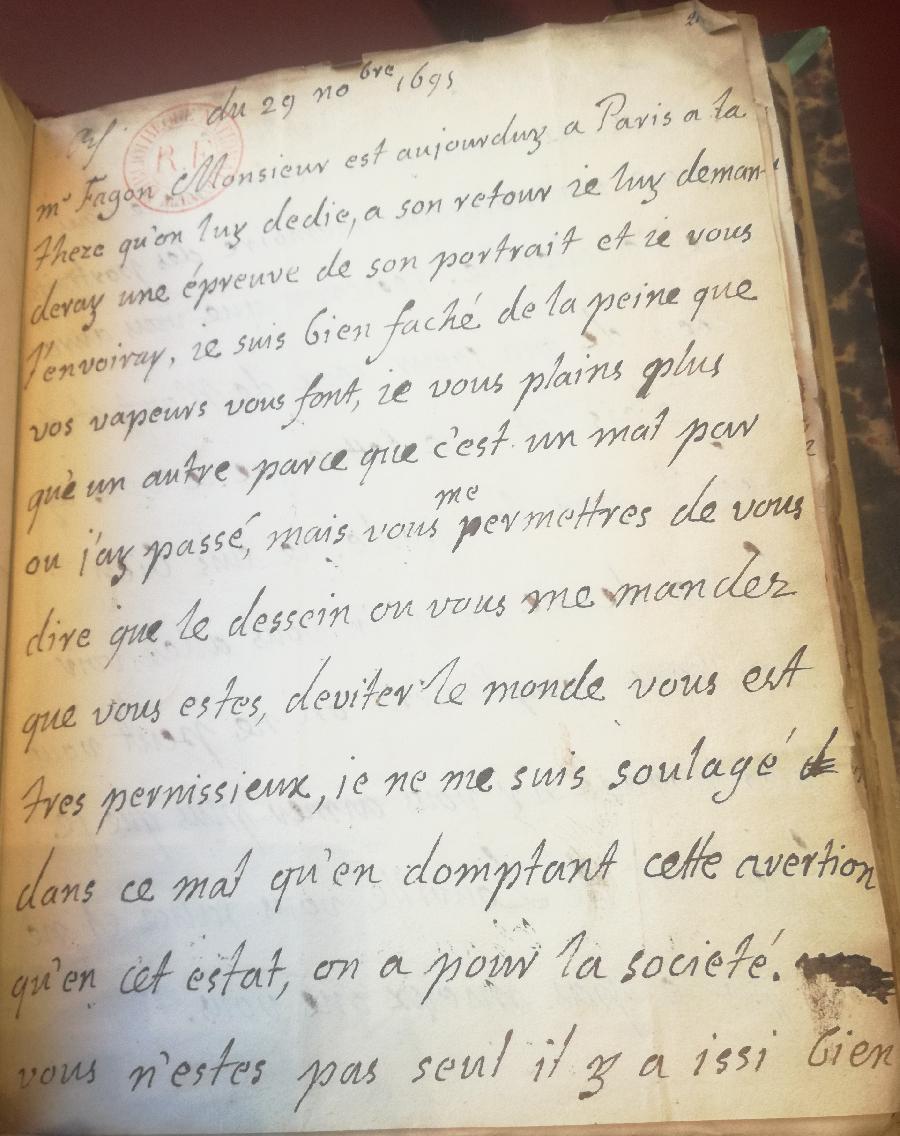 du 29 no bre 1695
R.F.
mr Fagon Monsieur est aujourduy a Paris a la
theze qu'on luy dedie, a son retour ie luy deman-
deray une épreuve de son portrait et ie vous
l'envoiray, ie suis bien faché de la peine que
vos vapeurs vous font, ie vous plains plus
qu'un autre parce que c'est un mal par
ou j'ay passé, mais vous me permettres de vous
dire que le dessein ou vous me mandez
que vous estes, deviter le monde vous est
tres pernissieux, je ne me suis soulagé
dans ce mal qu'en domptant cette avertion
qu'en cet estat, on a pour la societé.
vous n'estes pas seul il y a issi bien